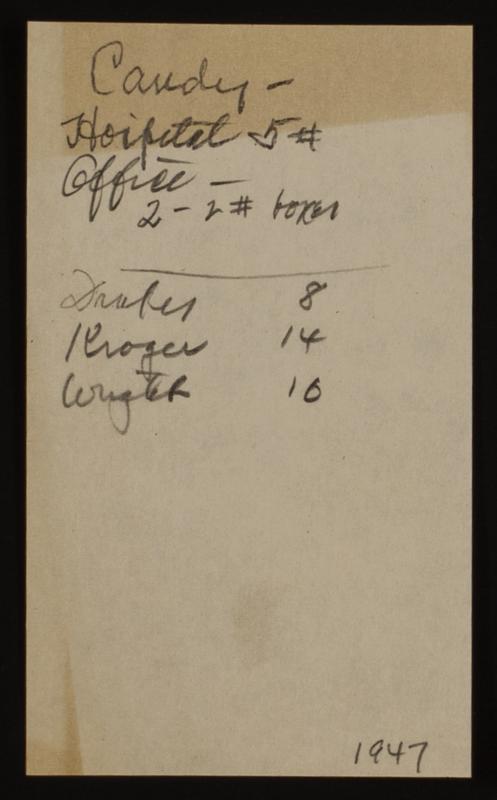 Candy -
Hospital 5#
Office -
2 - 2# boxes
8
Kroger 14
Wright 10
1947